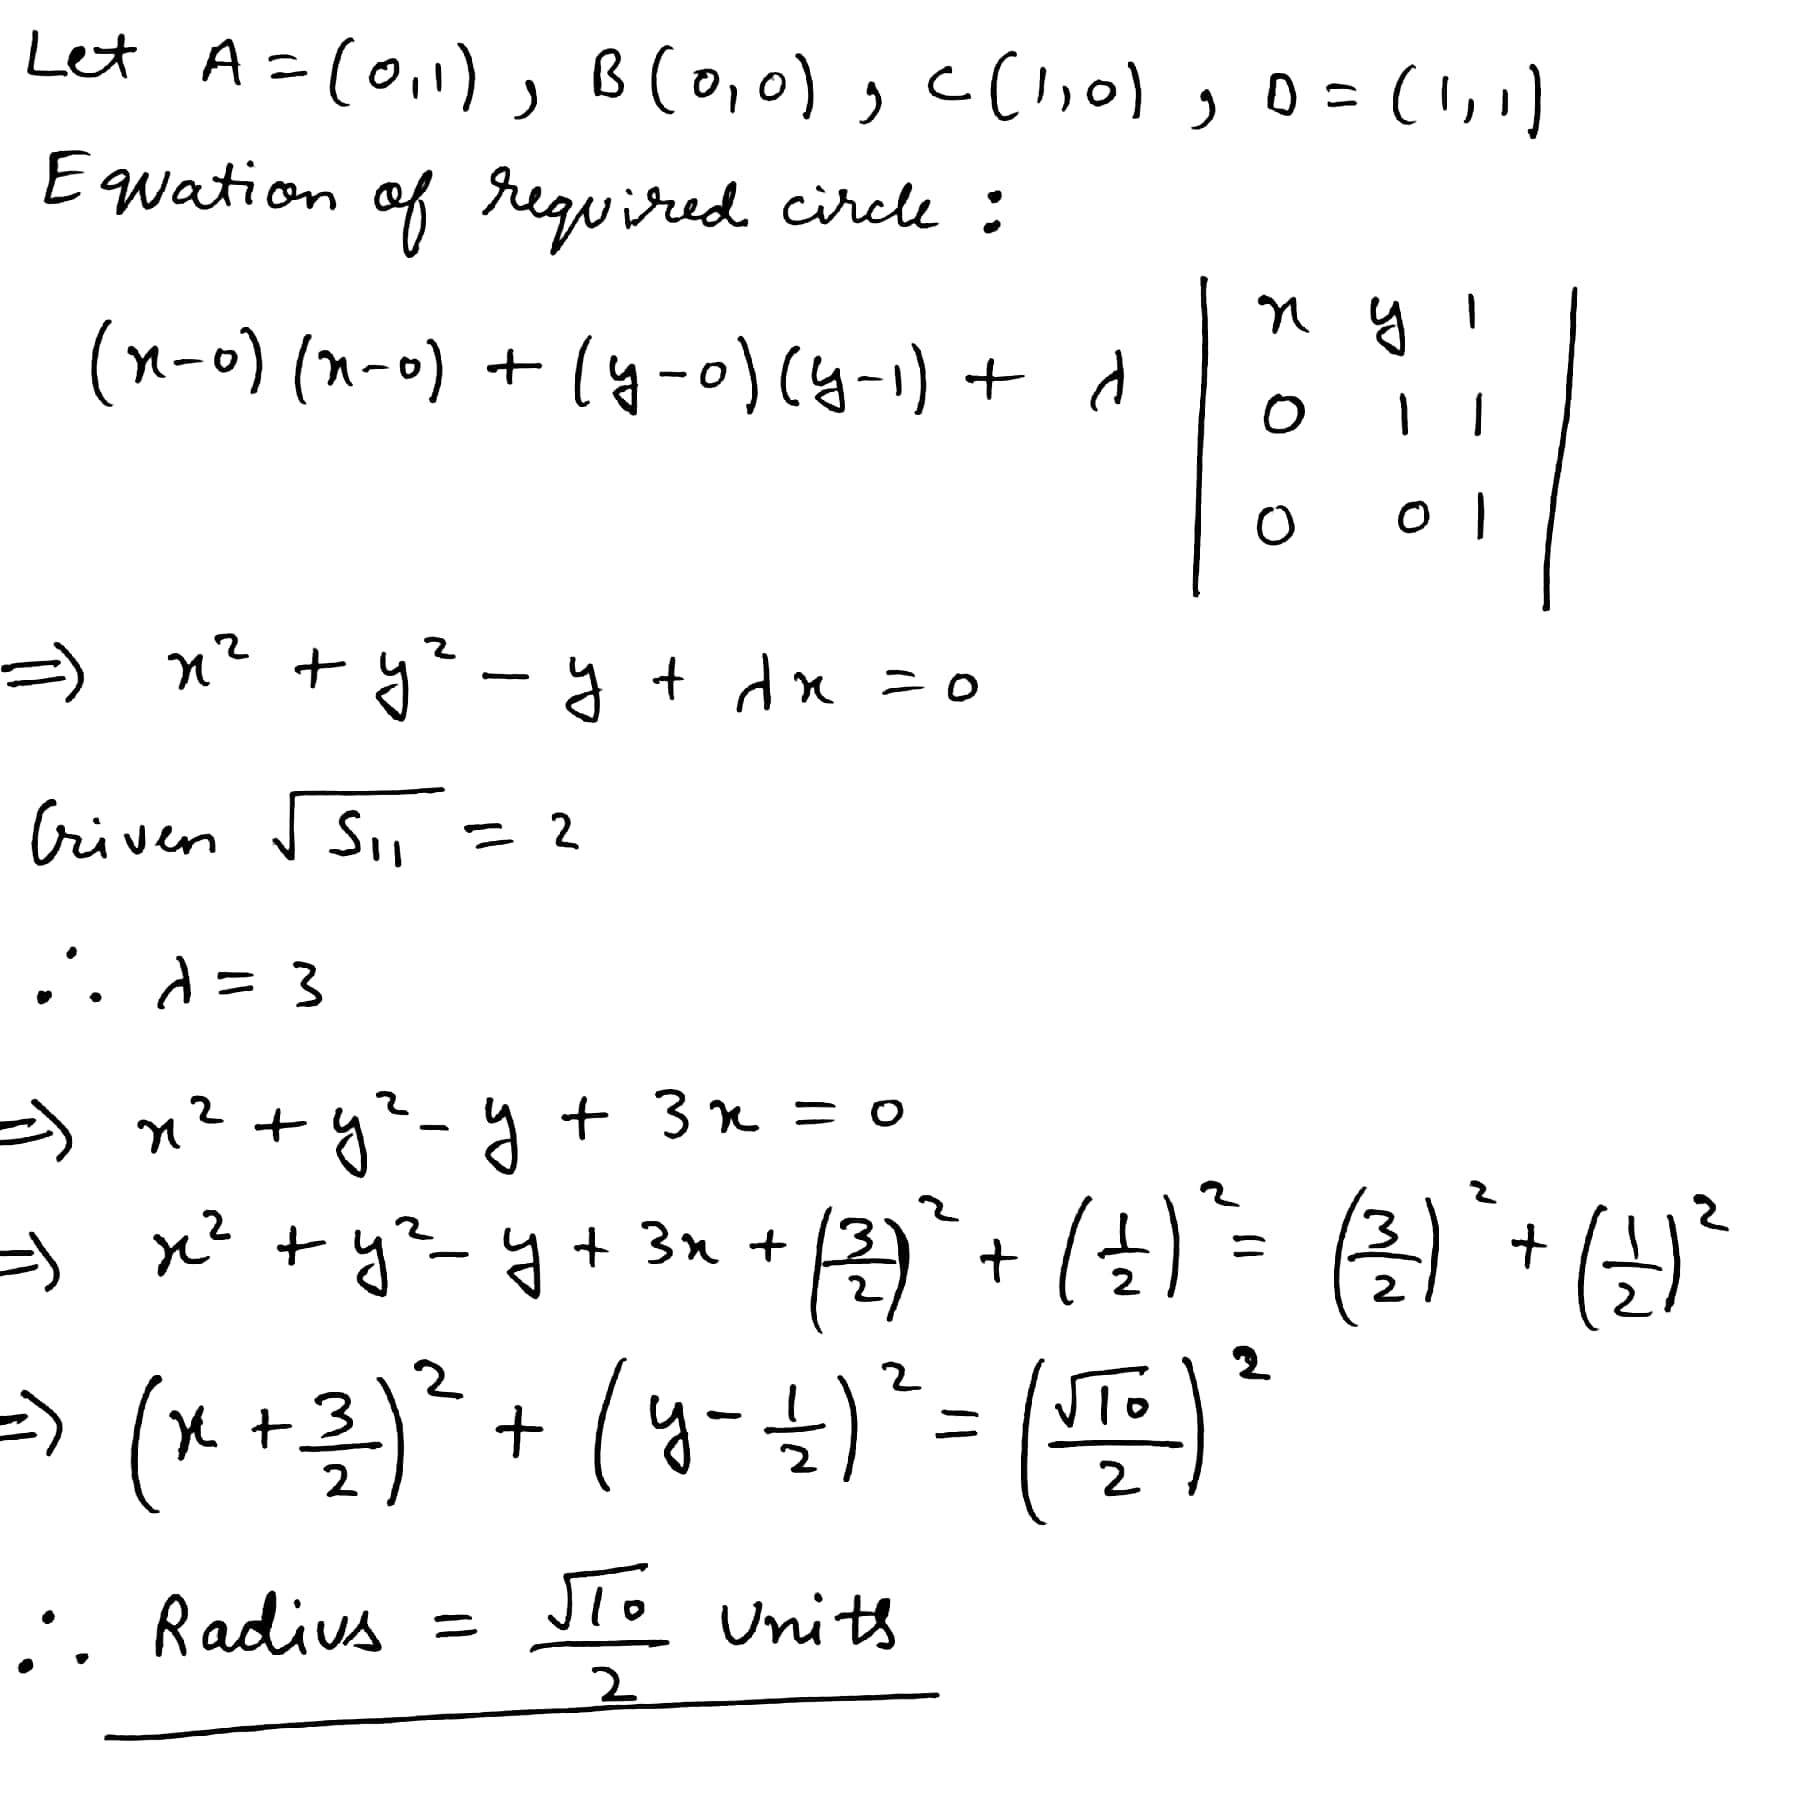 Let A = (0,1) , B (0,0) , C (1,0) , D = (1,1)
Equation of required circle :
(x-0) (x-0) + (y-0) (y-1) + λ | x y 1 |
| 0 1 1 |
| 0 0 1 |
⇒ x² + y² - y + λx = 0
Given √S₁₁ = 2
∴ λ = 3
⇒ x² + y² - y + 3x = 0
⇒ x² + y² - y + 3x + (3/2)² + (1/2)² = (3/2)² + (1/2)²
⇒ (x + 3/2)² + (y - 1/2)² = (√10/2)²
∴ Radius = √10/2 units